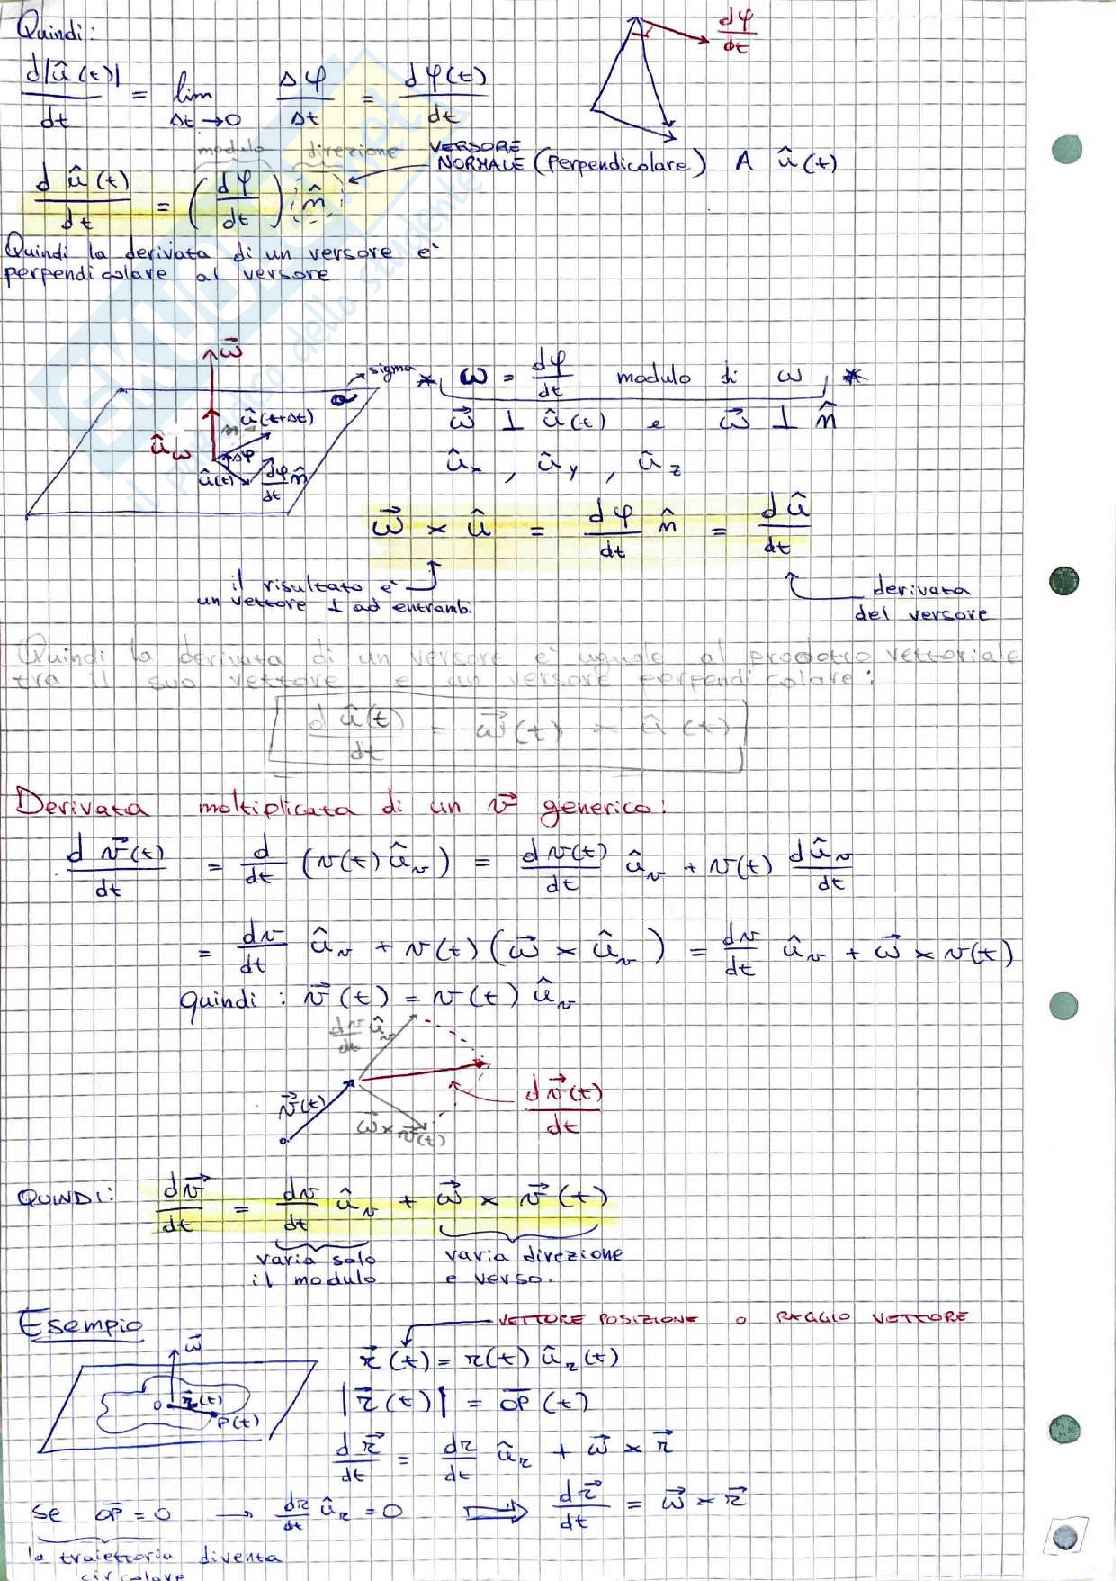 Quindi:
d|û(t)|/dt = lim Δt→0 Δφ/Δt = dφ(t)/dt
dφ/dt
modulo direzione
VERSORE
NORMALE (Perpendicolare) A û(t)
dû(t)/dt = (dφ/dt) n̂
Quindi la derivata di un versore e'
perpendicolare al versore
ω⃗
sigma
σ
û(t+Δt)
û_ω
Δφ
û(t)
dφ/dt n̂
* ω = dφ/dt modulo di ω, *
ω⃗ ⊥ û(t) e ω⃗ ⊥ n̂
û_x, û_y, û_z
ω⃗ × û = dφ/dt n̂ = dû/dt
il risultato e'
un vettore ⊥ ad entrambi
derivata
del versore
Quindi la derivata di un versore e' uguale al prodotto vettoriale
tra il suo vettore e un versore perpendicolare:
dû(t)/dt = ω⃗(t) × û(t)
Derivata moltiplicata di un v⃗ generico:
dv⃗(t)/dt = d/dt (v(t) û_v) = dv(t)/dt û_v + v(t) dû_v/dt
= dv/dt û_v + v(t) (ω⃗ × û_v) = dv/dt û_v + ω⃗ × v(t)
quindi: v⃗(t) = v(t) û_v
dv/dt û_v
v⃗(t)
ω⃗ × v⃗(t)
dv⃗(t)/dt
QUINDI: dv⃗/dt = dv/dt û_v + ω⃗ × v⃗(t)
varia solo
il modulo
varia direzione
e verso.
Esempio
VETTORE POSIZIONE o RAGGIO VETTORE
ω⃗
r⃗(t)
O
P(t)
r⃗(t) = r(t) û_r(t)
|r⃗(t)| = OP(t)
dr⃗/dt = dr/dt û_r + ω⃗ × r⃗
se OP = 0 → dr/dt û_r = 0 ⇒ dr⃗/dt = ω⃗ × r⃗
la traiettoria diventa
circolare